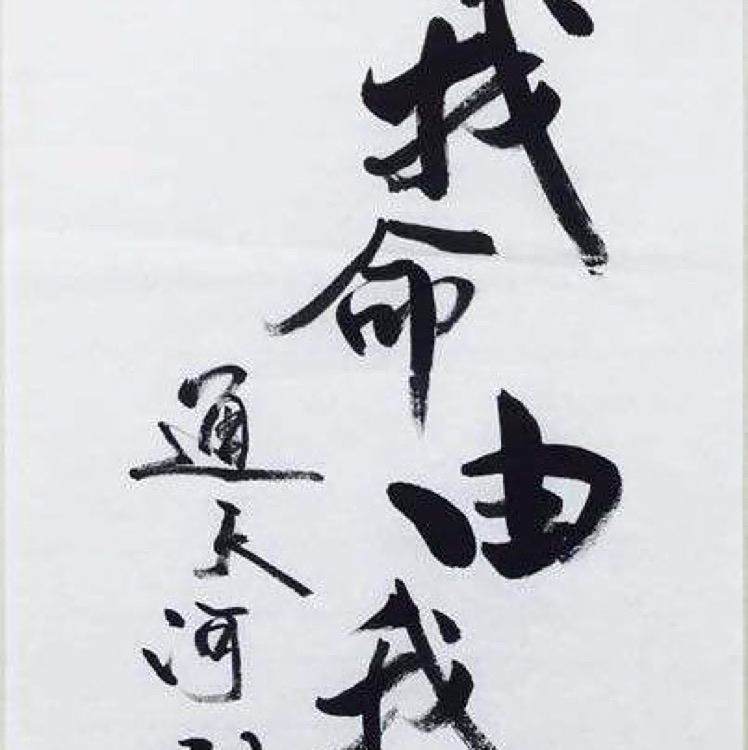 我命由我
通天河